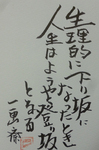 生理的に下り坂に
なったとき
人生はようやく登り坂
となる